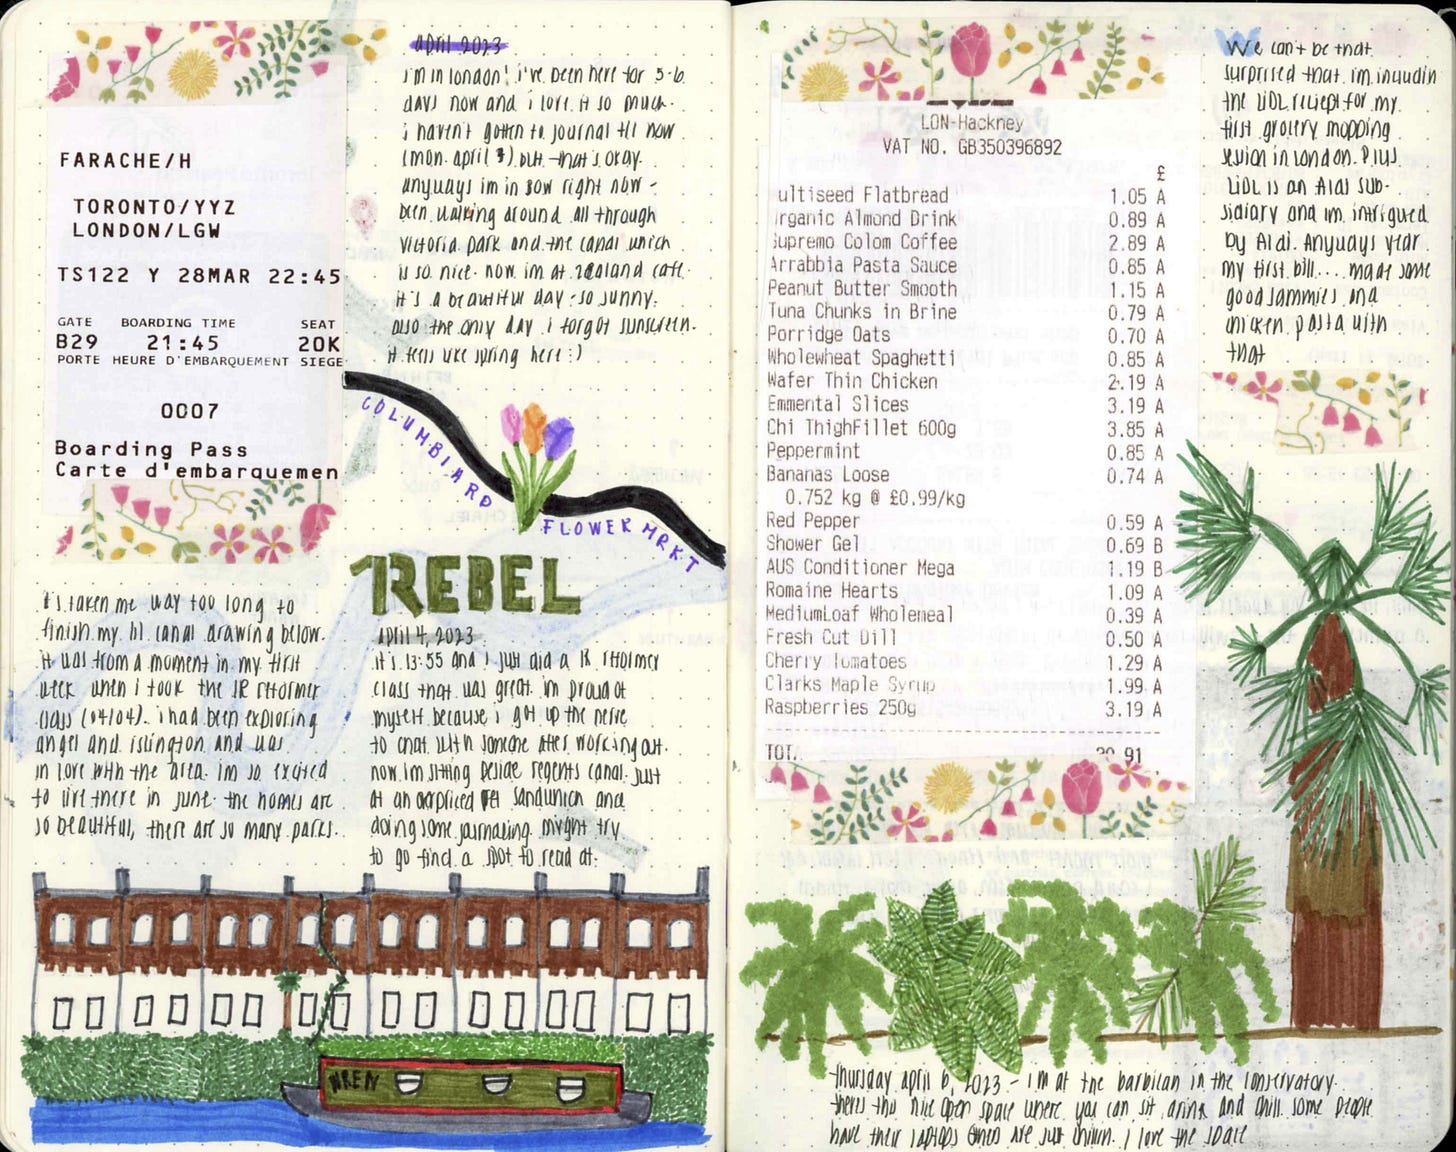 FARACHE/H
TORONTO/YYZ
LONDON/LGW
TS122 Y 28MAR 22:45
GATE BOARDING TIME SEAT
B29 21:45 20K
PORTE HEURE D'EMBARQUEMENT SIEGE
0007
Boarding Pass
Carte d'embarquemen
april 2023
i'm in london! i've been here for 5-6
days now and i love it so much.
i haven't gotten to journal till now
(mon. april 3) but that's okay.
anyways im in bow right now -
been walking around all through
victoria park and the canal which
is so nice. now im at zealand cafe.
it's a beautiful day - so sunny.
also the only day i forgot sunscreen.
it feels like spring here :)
COLUMBIA RD
FLOWER MRKT
REBEL
april 4, 2023
it's 13:55 and i just did a 1R reformer
class that was great. im proud of
myself because i got up the nerve
to chat with someone after working out.
now im sitting beside regents canal just
at an overpriced sandwich and
doing some journaling. might try
to go find a spot to read at.
it's taken me way too long to
finish my lil canal drawing below.
it was from a moment in my first
week when i took the 1R reformer
class (04/04). i had been exploring
angel and islington and was
in love with the area. im so excited
to live there in june. the homes are
so beautiful, there are so many parks.
WREN
LON-Hackney
VAT NO. GB350396892
£
ultiseed Flatbread 1.05 A
rganic Almond Drink 0.89 A
Supremo Colom Coffee 2.89 A
Arrabbia Pasta Sauce 0.85 A
Peanut Butter Smooth 1.15 A
Tuna Chunks in Brine 0.79 A
Porridge Oats 0.70 A
Wholewheat Spaghetti 0.85 A
Wafer Thin Chicken 2.19 A
Emmental Slices 3.19 A
Chi ThighFillet 600g 3.85 A
Peppermint 0.85 A
Bananas Loose 0.74 A
0.752 kg @ £0.99/kg
Red Pepper 0.59 A
Shower Gel 0.69 B
AUS Conditioner Mega 1.19 B
Romaine Hearts 1.09 A
MediumLoaf Wholemeal 0.39 A
Fresh Cut Dill 0.50 A
Cherry Tomatoes 1.29 A
Clarks Maple Syrup 1.99 A
Raspberries 250g 3.19 A
TOT. 30.91
We can't be that
surprised that im includin
the LIDL reciept for my
first grocery shopping
session in london. Plus
LIDL is an Aldi sub-
sidiary and im intrigued
by Aldi. Anyways year
my first bill.... made some
good sammies and
chicken pasta with
that
thursday april 6, 2023 - i'm at the barbican in the conservatory.
theres this nice open space where you can sit, drink and chill. some people
have their laptops others are just chillin. i love the space